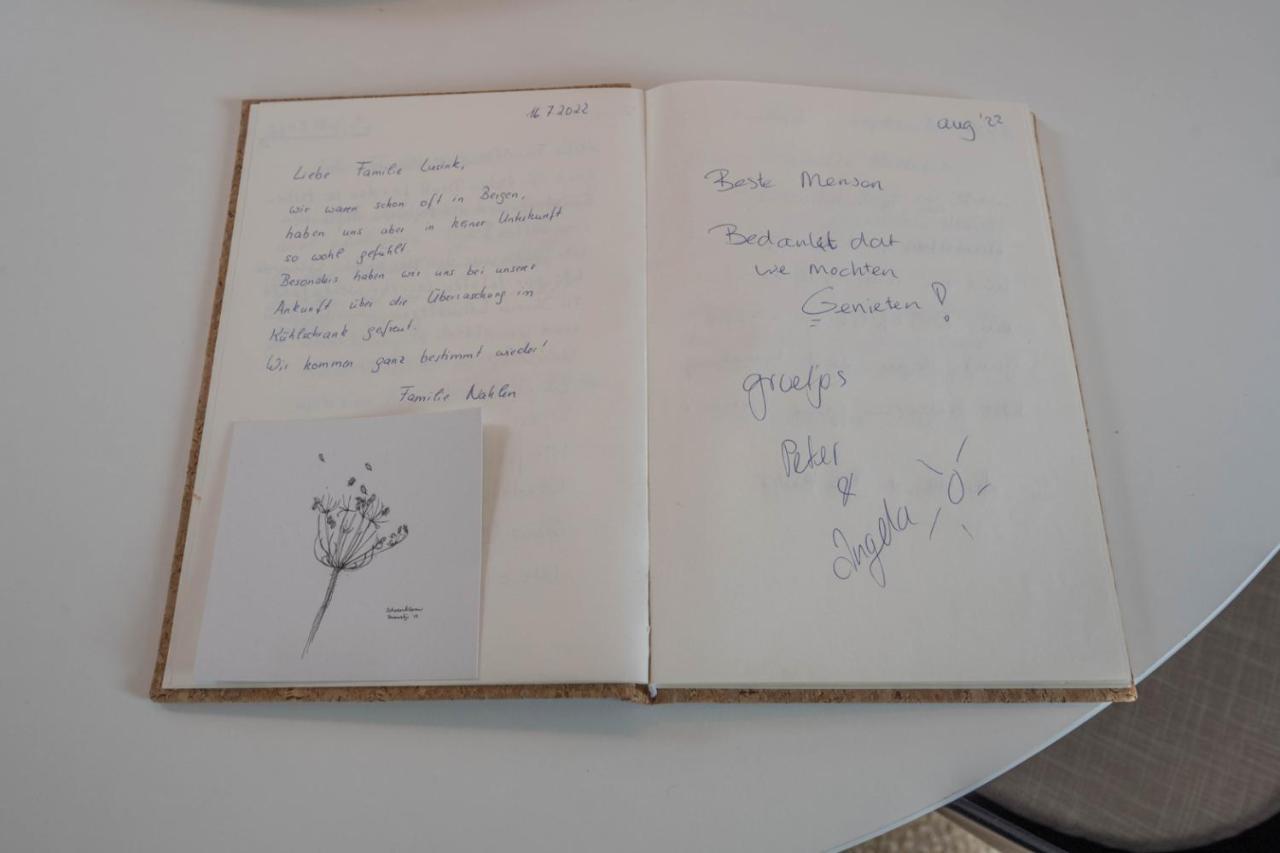 16.7.2022
Liebe Familie Lusink,
wir waren schon oft in Bergen,
haben uns aber in keiner Unterkunft
so wohl gefühlt
Besonders haben wir uns bei unserer
Ankunft über die Überraschung im
Kühlschrank gefreut.
Wir kommen ganz bestimmt wieder!
Familie Nahlen
aug '22
Beste Menson
Bedankt dat
we mochten
Genieten!
groetjes
Peter
&
Ingela